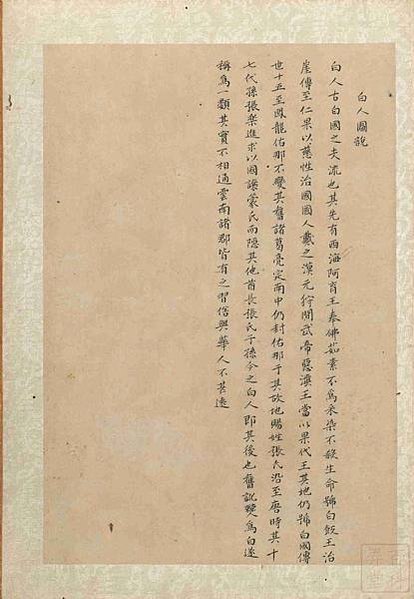 白人圖說
白人古白國之支流也其先有西海阿育王奉佛茹素不爲采染不殺生命號白飯王治
崖傳至仁果以慈性治國國人戴之漢元狩間武帝惡滇王當以果代王其地仍號白國傳
世十五至鳳龍佑那不變其舊諸葛亮定南中仍封佑那于其故地賜姓張氏沿至唐時其十
七代孫張樂進求以國讓蒙氏而隱其他酋長張氏子孫今之白人即其後也舊訛僰爲白遂
稱爲一類其實不相通雲南諸郡皆有之習俗與華人不甚遠